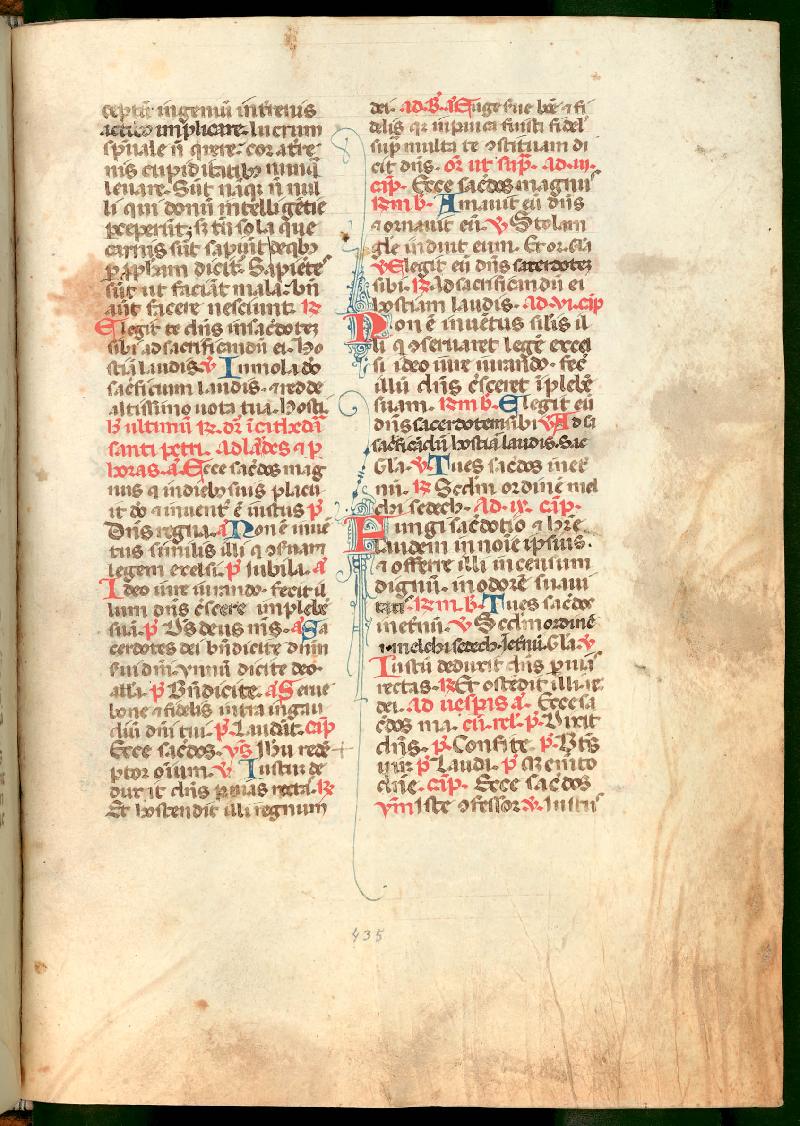 ceptū ingeniū in trenis
actibꝰ implicare. lucrum
spūale nō q̄rere. cor a tre
nis cupiditatibꝰ nunq̄
leuare. Sūt nāqꝫ nō nul
li qui donū intelligētie
preperūt; sꝫ tū sola que
carnis sūt sapiūt de qbꝫ
ꝑ ꝓph̄am dicit. Sapiētes
sūt ut faciāt mala. bn̄
aūt facere nesciunt. ꝶ
Elegit te dn̄s in saċdoteꝫ
sibi ad sacrificandū ei. ho
stiā laudis. ℣ Immola do
sacr̄ficium laudis. ⁊ redde
altissimo uota tua. Hosti.
ꝶ ultimū ꝶ. dr̄ ī cathedā
santi petri. ad lādes ⁊ ꝑ
horas. a. Ecce saċdos mag
nus q̄ in diebꝰ suis placu
it do ⁊ inuent' ē iustus p̄
Dn̄s regna. a Non ē inuē
tus similis illi q ꝯseruar&
legem excelsi. p̄ iubila. a
Ideo iure iurando. fecit il
lum dn̄s cr̄scere in plebē
suā. p̄ Ds̄ deus ms̄. a Sa
cerdotes dei bn̄dicite dn̄m
sui dn̄i. ymnū dicite deo.
all'a. p̄ Bn̄dicite. a Serue
bone ⁊ fidelis intra in gau
diū dn̄i tui. p̄. Laudāt. cāp
Ecce saċdos. ym̄s Ih̄u redē
ptor oīum. ℣ Iustum de
duxit dn̄s ꝑ uias rectā. ꝶ
Et hostendit illi regnum
dei. ad. B. a Euge sue bōe ⁊ fi
delis qr in pauca fuisti fidel'
suꝑ multa te ꝯstituam di
cit dn̄s. or̄ ut sup̄. ad. iii.
cāp. Ecce saċdos magnus
ꝶm b. Amauit eū dn̄s
⁊ ornauit eū. ℣ Stolam
gle induit eum. Et or. Gla
℣ Elegit eū dn̄s sacerdoteꝫ
sibi. ꝶ Ad sacrificandū ei
hostiam laudis. ad. vi. cāp
Non ē inuētus silis il
li q ꝯseruaret legē excel
si ideo iure iurando. fec̄
illū dn̄s cr̄sceret ī plebē
suam. ꝶm b. Elegit eū
dn̄s sacerdotem sibi ℣ Ad sa
cr̄ficādū hostiā laudis. Sac
Gla. ℣ Tu es saċdos in et̄
nū. ꝶ Scd̄m ordinē mel
chisedech. Ad. ix. cāp.
Fungi saċdotio ⁊ hr̄e
laudem in noīe ipsius.
⁊ offerre illi incensum
dignū. in odorē suaui
tatis. ꝶm. b. Tu es saċdos
inet̄nū. ℣ Scd̄m ordinē
melchisedech. Iet̄nū. Gla. ℣
Iustū deduxit dn̄s ꝑ uiā
rectas. ꝶ Et ostēdit illi re.
dei. ad uesp̄is a. Ecce sa
ċdos ma. cū rel'. p̄. Dixit
dn̄s. p̄. Confite. p̄. Bt̄s
uir p̄ Laudi. p̄ memento
dn̄e. cāp. Ecce saċdos
ym̄ Iste ꝯfessor ℣. Iustus
435